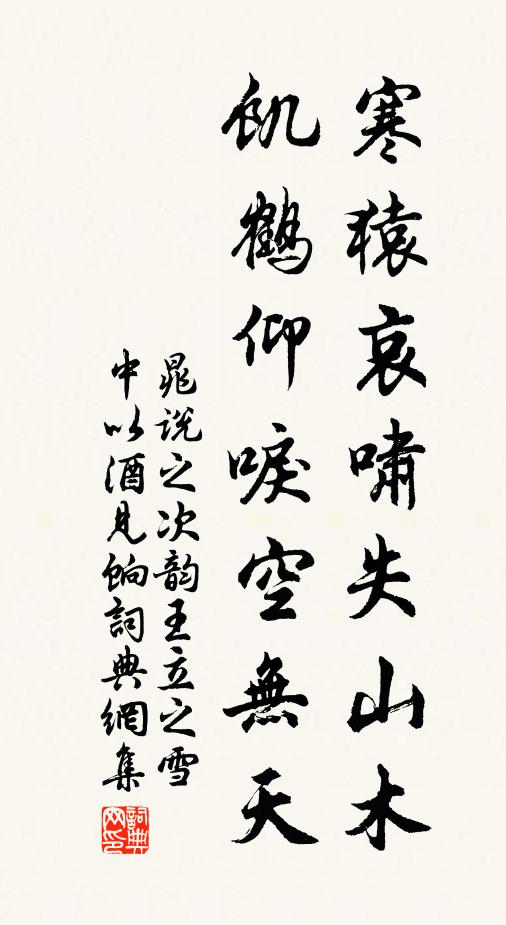 寒猿哀嘯失山木
飢鶴仰唳空無天
晁說之次韵王立之雪
中以酒見餉詞典網集
詞典
网印